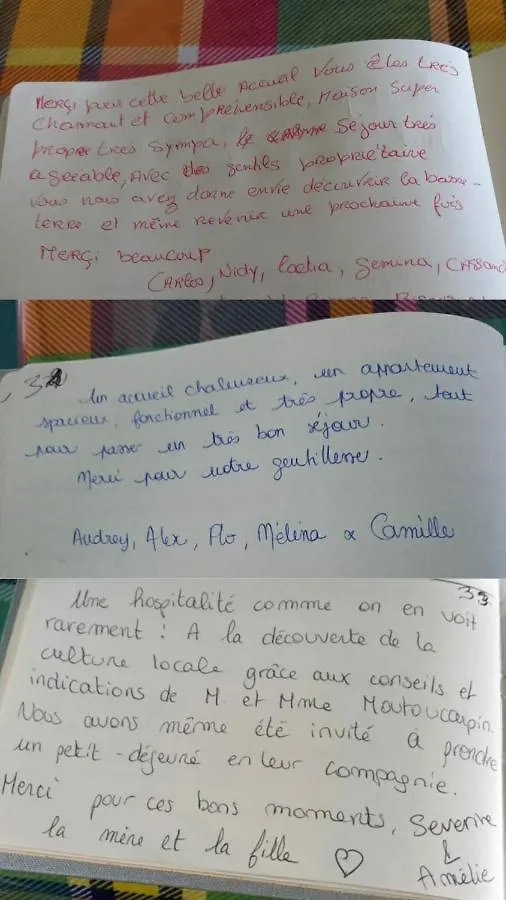 Merçi pour cette belle Accueil Vous êtes très
charmant et compréhensible, Maison super
propre très sympa, séjour très
agréable, Avec des gentils propriétaire
vous nous avez donné envie découvrir la basse-
terre et même revenir une prochaine fois
Merçi beaucoup
Carlos, Nidy,
Un accueil chaleureux, un appartement
spacieux, fonctionnel et très propre, tout
pour passer un très bon séjour.
Merci pour votre gentillesse.
Audrey, Alex, Flo, Mélina & Camille
33
Une hospitalité comme on en voit
rarement ! A la découverte de la
culture locale grâce aux conseils et
indications de M. et Mme Moutoucarpin.
Nous avons même été invité à prendre
un petit-déjeuné en leur compagnie.
Merci pour ces bons moments, Severine
la mère et la fille ♡ & Amélie